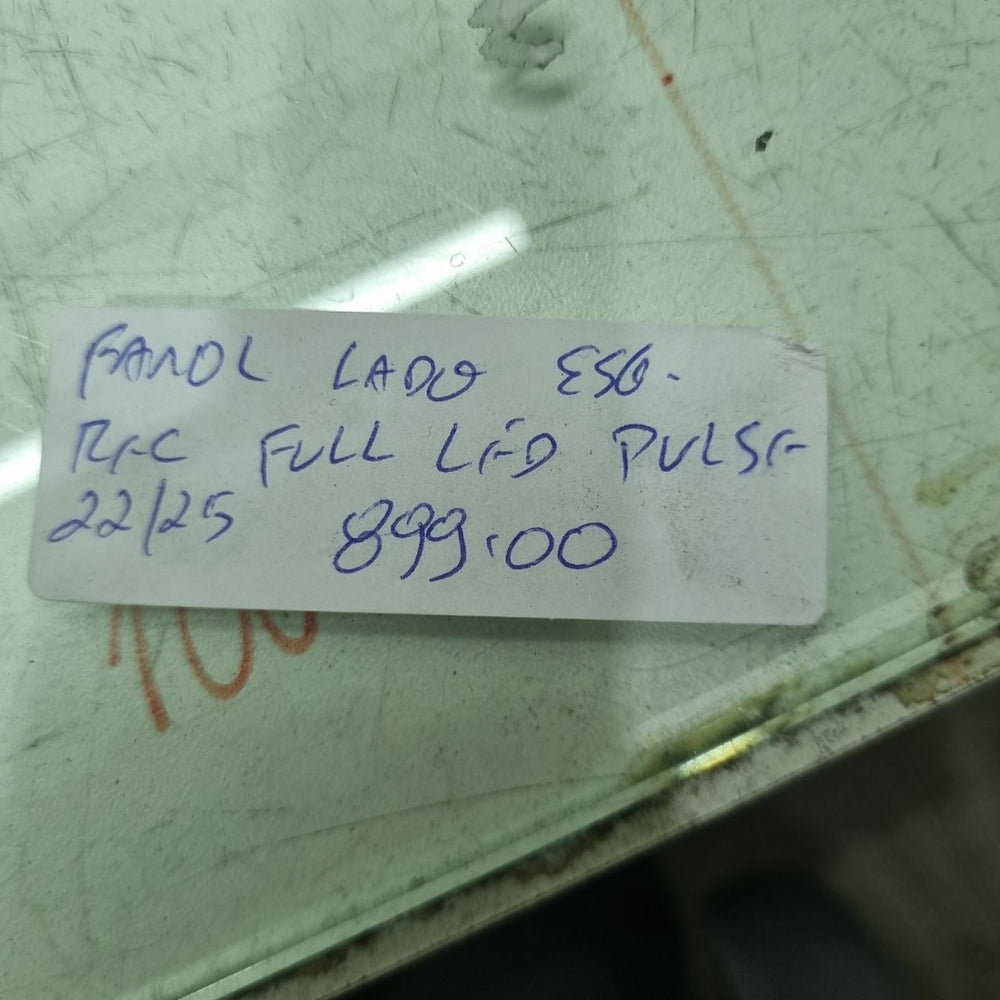 FAROL LADO ESQ.
REC FULL LED PULSE
22/25 899,00
100